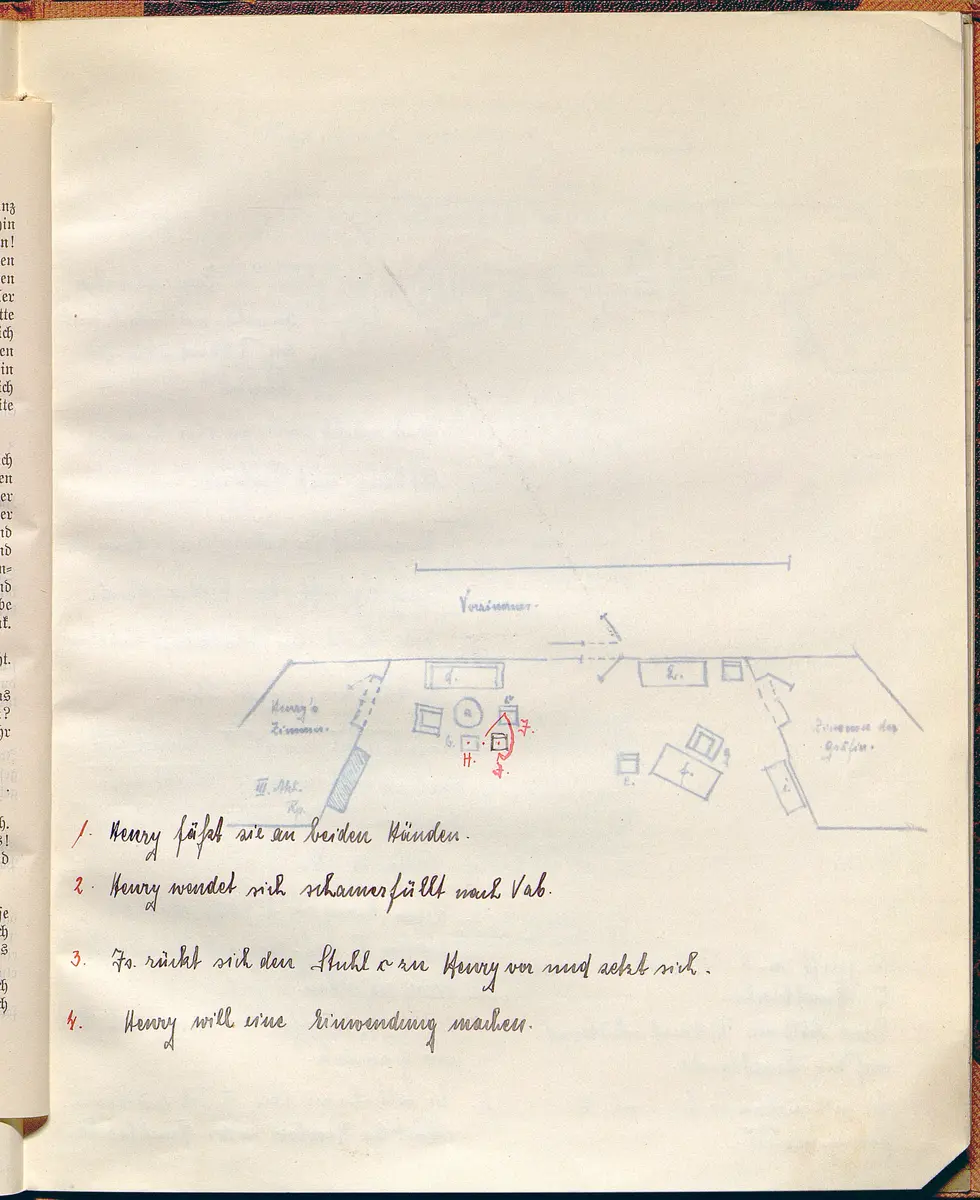 nz
hin
n!
en
en
er
tte
ich
en
in
ich
ite
ch
en
er
er
nd
nd
n=
nd
be
nk.
ht.
as
?
hr
.
h.
s!
d
je
ch
s
ch
ch
Vorzimmer.
d.
h.
Henry's
Zimmer.
a
c
b.
J.
H.
Zimmer der
Gräfin.
g
e.
f.
i.
III. Akt.
1. Henry fäßt sie an beiden Händen.
2. Henry wendet sich schamerfüllt nach Vab.
3. Is. rückt sich den Stuhl c zu Henry vor und setzt sich.
4. Henry will eine Einwendung machen.